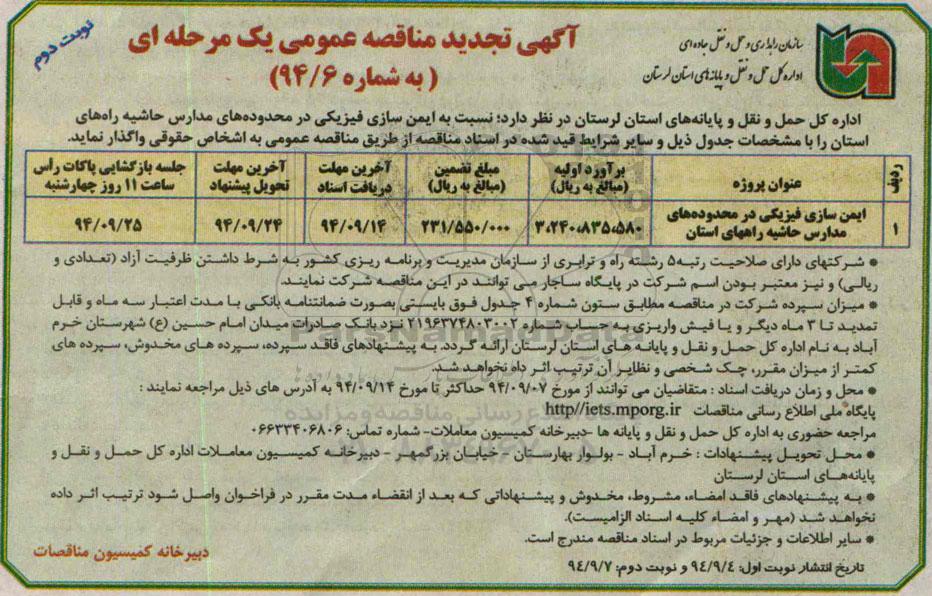 سازمان راهداری و حمل و نقل جاده ای
اداره کل حمل و نقل و پایانه های استان لرستان
نوبت دوم
آگهی تجدید مناقصه عمومی یک مرحله ای
( به شماره ۹۴/۶)
اداره کل حمل و نقل و پایانه‌های استان لرستان در نظر دارد؛ نسبت به ایمن سازی فیزیکی در محدوده‌های مدارس حاشیه راه‌های
استان را با مشخصات جدول ذیل و سایر شرایط قید شده در اسناد مناقصه از طریق مناقصه عمومی به اشخاص حقوقی واگذار نماید.
ردیف عنوان پروژه برآورد اولیه (مبالغ به ریال) مبلغ تضمین (مبالغ به ریال) آخرین مهلت دریافت اسناد آخرین مهلت تحویل پیشنهاد جلسه بازگشایی پاکات رأس ساعت ۱۱ روز چهارشنبه
۱ ایمن سازی فیزیکی در محدوده‌های مدارس حاشیه راههای استان ۳،۲۴۰،۸۳۵،۵۸۰ ۲۳۱/۵۵۰/۰۰۰ ۹۴/۰۹/۱۴ ۹۴/۰۹/۲۴ ۹۴/۰۹/۲۵
* شرکتهای دارای صلاحیت رتبه۵ رشته راه و ترابری از سازمان مدیریت و برنامه ریزی کشور به شرط داشتن ظرفیت آزاد (تعدادی و
ریالی) و نیز معتبر بودن اسم شرکت در پایگاه ساجار می توانند در این مناقصه شرکت نمایند.
* میزان سپرده شرکت در مناقصه مطابق ستون شماره ۴ جدول فوق بایستی بصورت ضمانتنامه بانکی با مدت اعتبار سه ماه و قابل
تمدید تا ۳ ماه دیگر و یا فیش واریزی به حساب شماره ۲۱۹۶۳۷۴۸۰۳۰۰۲ نزد بانک صادرات میدان امام حسین (ع) شهرستان خرم
آباد به نام اداره کل حمل و نقل و پایانه های استان لرستان ارائه گردد. به پیشنهادهای فاقد سپرده، سپرده های مخدوش، سپرده های
کمتر از میزان مقرر، چک شخصی و نظایر آن ترتیب اثر داه نخواهد شد.
* محل و زمان دریافت اسناد : متقاضیان می توانند از مورخ ۹۴/۰۹/۰۷ حداکثر تا مورخ ۹۴/۰۹/۱۴ به آدرس های ذیل مراجعه نمایند :
پایگاه ملی اطلاع رسانی مناقصات http//iets.mporg.ir
مراجعه حضوری به اداره کل حمل و نقل و پایانه ها -دبیرخانه کمیسیون معاملات- شماره تماس: ۰۶۶۳۳۴۰۶۸۰۶
* محل تحویل پیشنهادات : خرم آباد - بولوار بهارستان - خیابان بزرگمهر - دبیرخانه کمیسیون معاملات اداره کل حمل و نقل و
پایانه‌های استان لرستان
* به پیشنهادهای فاقد امضاء، مشروط، مخدوش و پیشنهاداتی که بعد از انقضاء مدت مقرر در فراخوان واصل شود ترتیب اثر داده
نخواهد شد (مهر و امضاء کلیه اسناد الزامیست).
* سایر اطلاعات و جزئیات مربوط در اسناد مناقصه مندرج است.
تاریخ انتشار نوبت اول: ۹۴/۹/۴ و نوبت دوم: ۹۴/۹/۷
دبیرخانه کمیسیون مناقصات